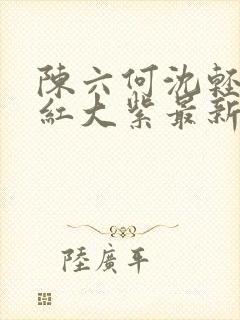 陳六何沈輕
紅大紫最新
陸廣平